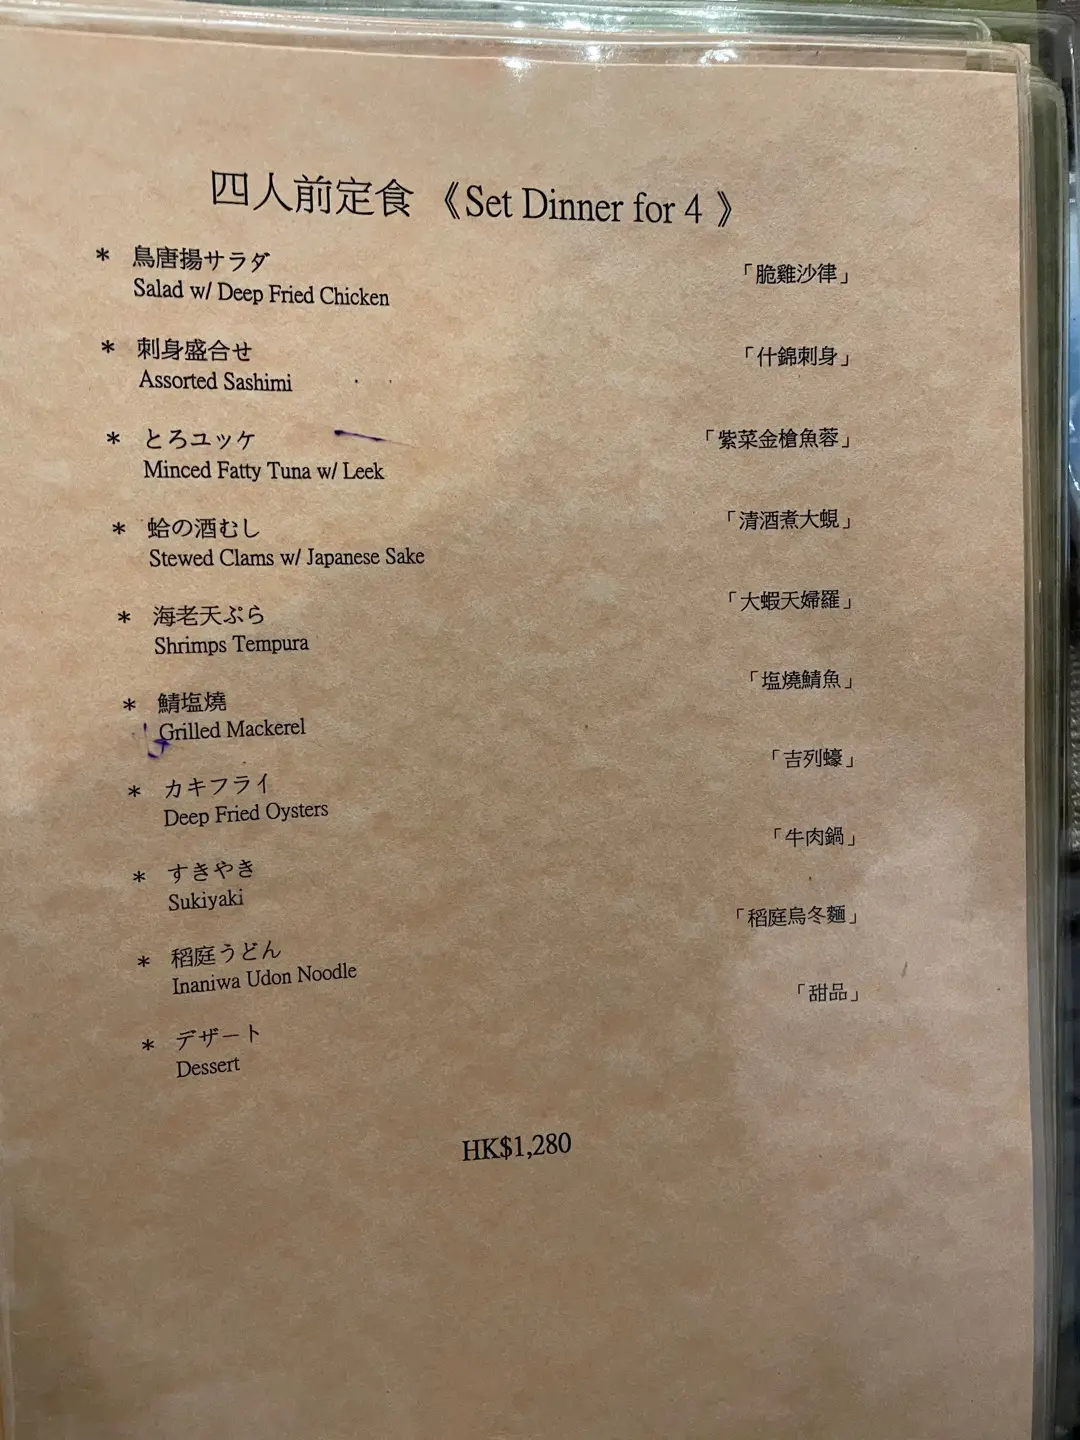 四人前定食 《Set Dinner for 4 》
* 鳥唐揚サラダ 「脆雞沙律」
Salad w/ Deep Fried Chicken
* 刺身盛合せ 「什錦刺身」
Assorted Sashimi
* とろユッケ 「紫菜金槍魚蓉」
Minced Fatty Tuna w/ Leek
* 蛤の酒むし 「清酒煮大蜆」
Stewed Clams w/ Japanese Sake
* 海老天ぷら 「大蝦天婦羅」
Shrimps Tempura
* 鯖塩燒 「塩燒鯖魚」
Grilled Mackerel
* カキフライ 「吉列蠔」
Deep Fried Oysters
* すきやき 「牛肉鍋」
Sukiyaki
* 稻庭うどん 「稻庭烏冬麵」
Inaniwa Udon Noodle
* デザート 「甜品」
Dessert
HK$1,280